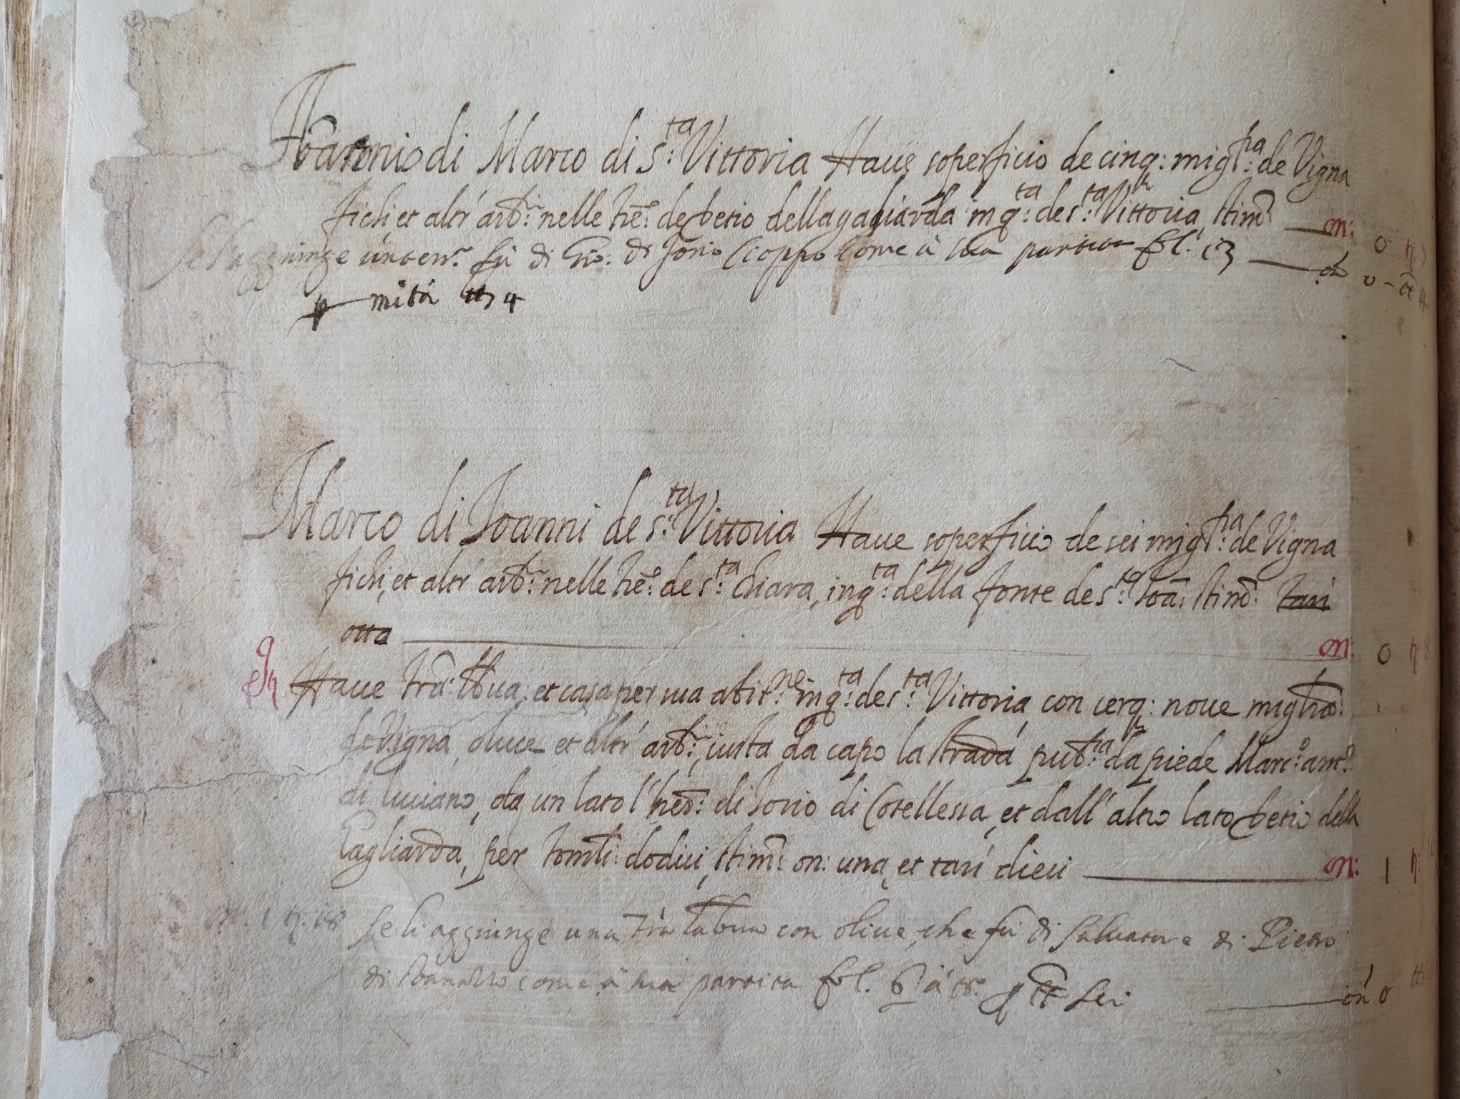 di Marco di S.ta Vittoria Have soperficio de cinq: migl.ra de Vigna
fichi, et altri arb.ri nelle t're de betio della gagliarda in q.ta de s.ta Vitt.ria stim.to on: 0
Se l'aggiunge fù di Gio: di come à sua partita fol. 13 on 0
mità tt 4
Marco di Joanni de s.ta Vittoria Have soperficio de sei migl.ra de Vigna
fichi, et altri arb.ri nelle t're de s.ta Chiara, in q.ta della fonte de s.to Joa: stim.o tari
otto on: 0
Have et casa per sua abit.ne in q.ta de s.ta Vittoria, con cerq: nove migliara
de Vigna, olive et altri arb.ri, iusta da capo la strada pub.ca da piede Marc:ant.o
di luciano, da un lato l'her: di Iorio di Cotellessa, et dall'altro lato betio della
Gagliarda, per tom.li dodici, stim.o on: una, et tarì dieci on: 1
Se li aggiunge una con olive, che fù di Salvatore di Pietro
come à sua partita fol. 6 à t.o p tt sei on 0